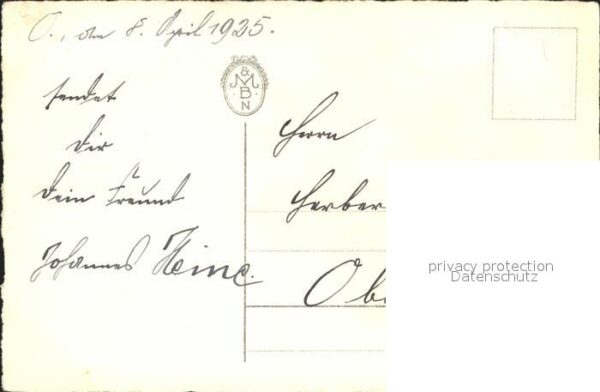 O., den 8. April 1925.
sendet
Dir
Dein Freund
Johannes Heine.
&
M
B
N
Herrn
Herber
Ob
privacy protection
Datenschutz